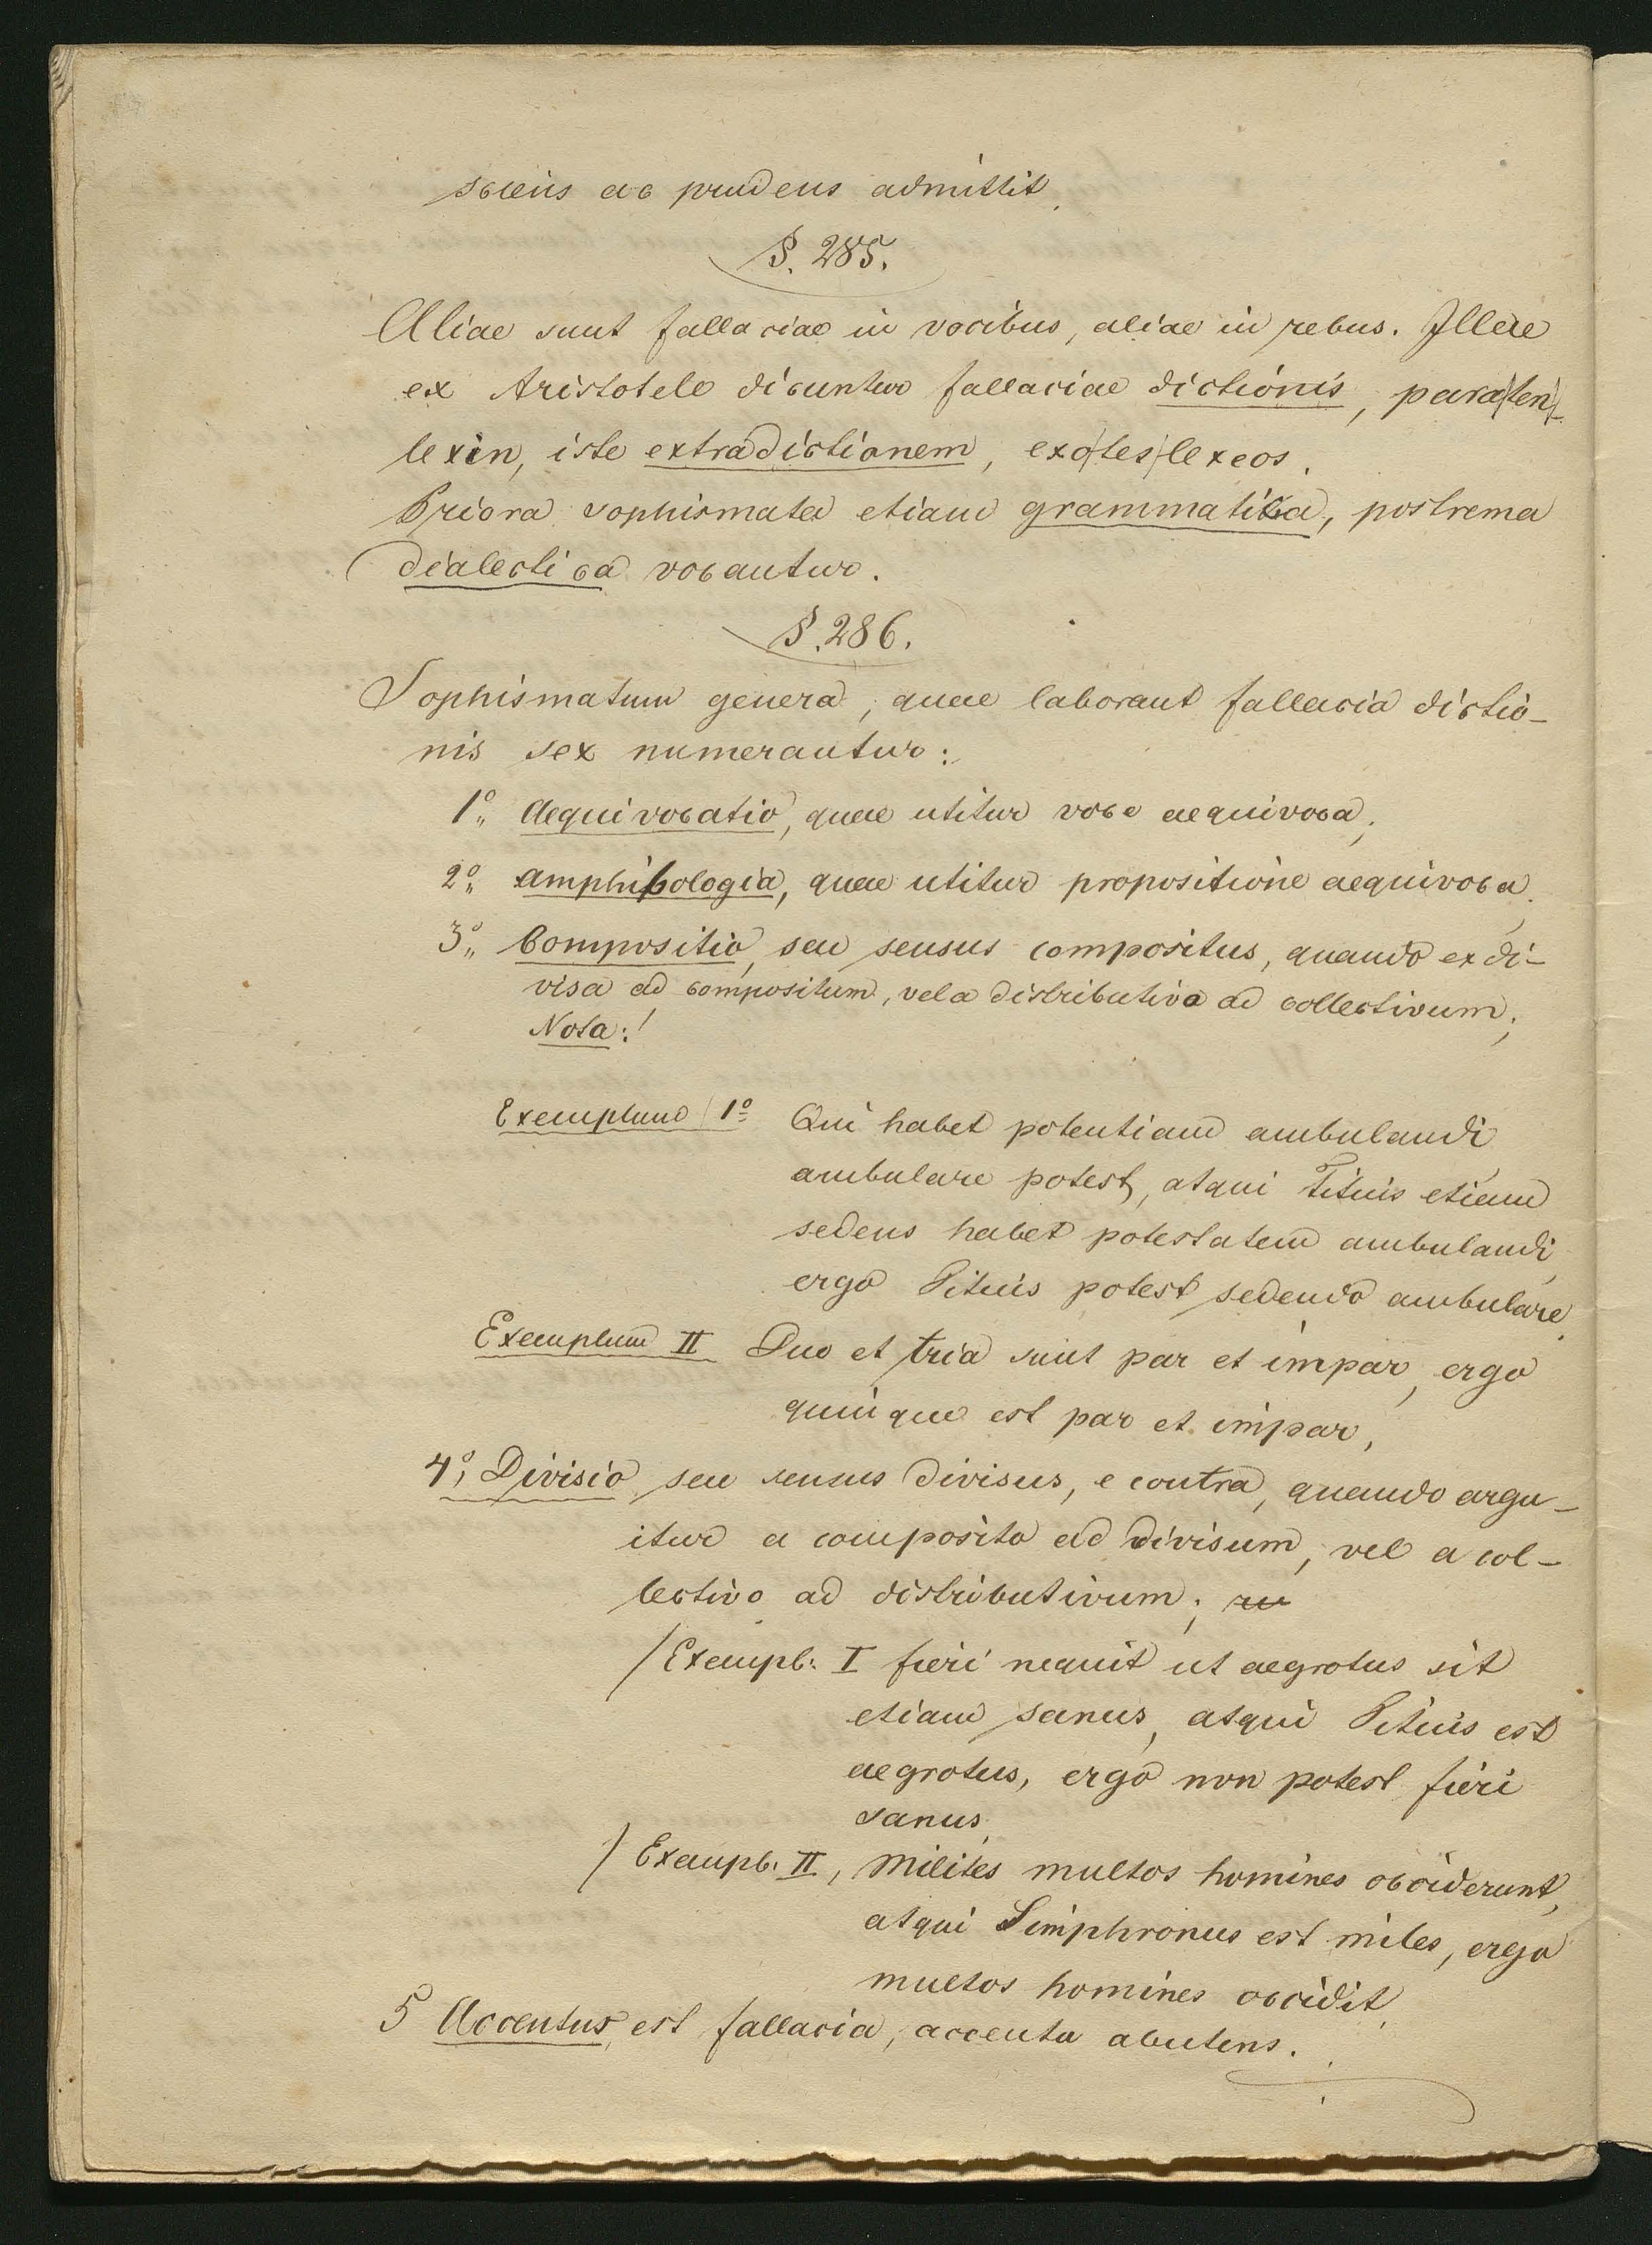 sciens ac prudens admittit.
§. 285.
Aliae sunt fallaciae in vocibus, aliae in rebus. Illae
ex Aristotele dicuntur fallaciae dictionis, para|ten|-
lexin, iste extradictionem, exo|tes|lexeos.
Priora sophismata etiam grammatica, postrema
dialectica vocantur.
§. 286.
Sophismatum genera, quae laborant fallacia dictio-
nis sex numerantur:
1o„ Aequivocatio, quae utitur voce aequivoca;
2o„ amphibologia, quae utitur propositione aequivoca;
3o„ Compositio, seu sensus compositus, quando ex di-
visa ad compositum, vel a distributiva ad collectivum;
Nota:!
Exemplum 1o Qui habet potentiam ambulandi
ambulare potest, atqui Titius etiam
sedens habet potestatem ambulandi,
ergo Titius potest sedendo ambulare.
Exemplum II Duo et tria sunt par et impar, ergo
quinque est par et impar,
4o, Divisio seu sensus divisus, e contra, quando argu-
itur a composito ad divisum, vel a col-
lectivo ad distributivum;
/Exempl: I fieri nequit ut aegrotus sit
etiam sanus, atqui Titius est
aegrotus, ergo non potest fieri
sanus.
/Exempl. II, Milites multos homines occiderunt,
atqui Simphronus est miles, ergo
multos homines occidit,
5 Accentus, est fallacia, accentu abutens.